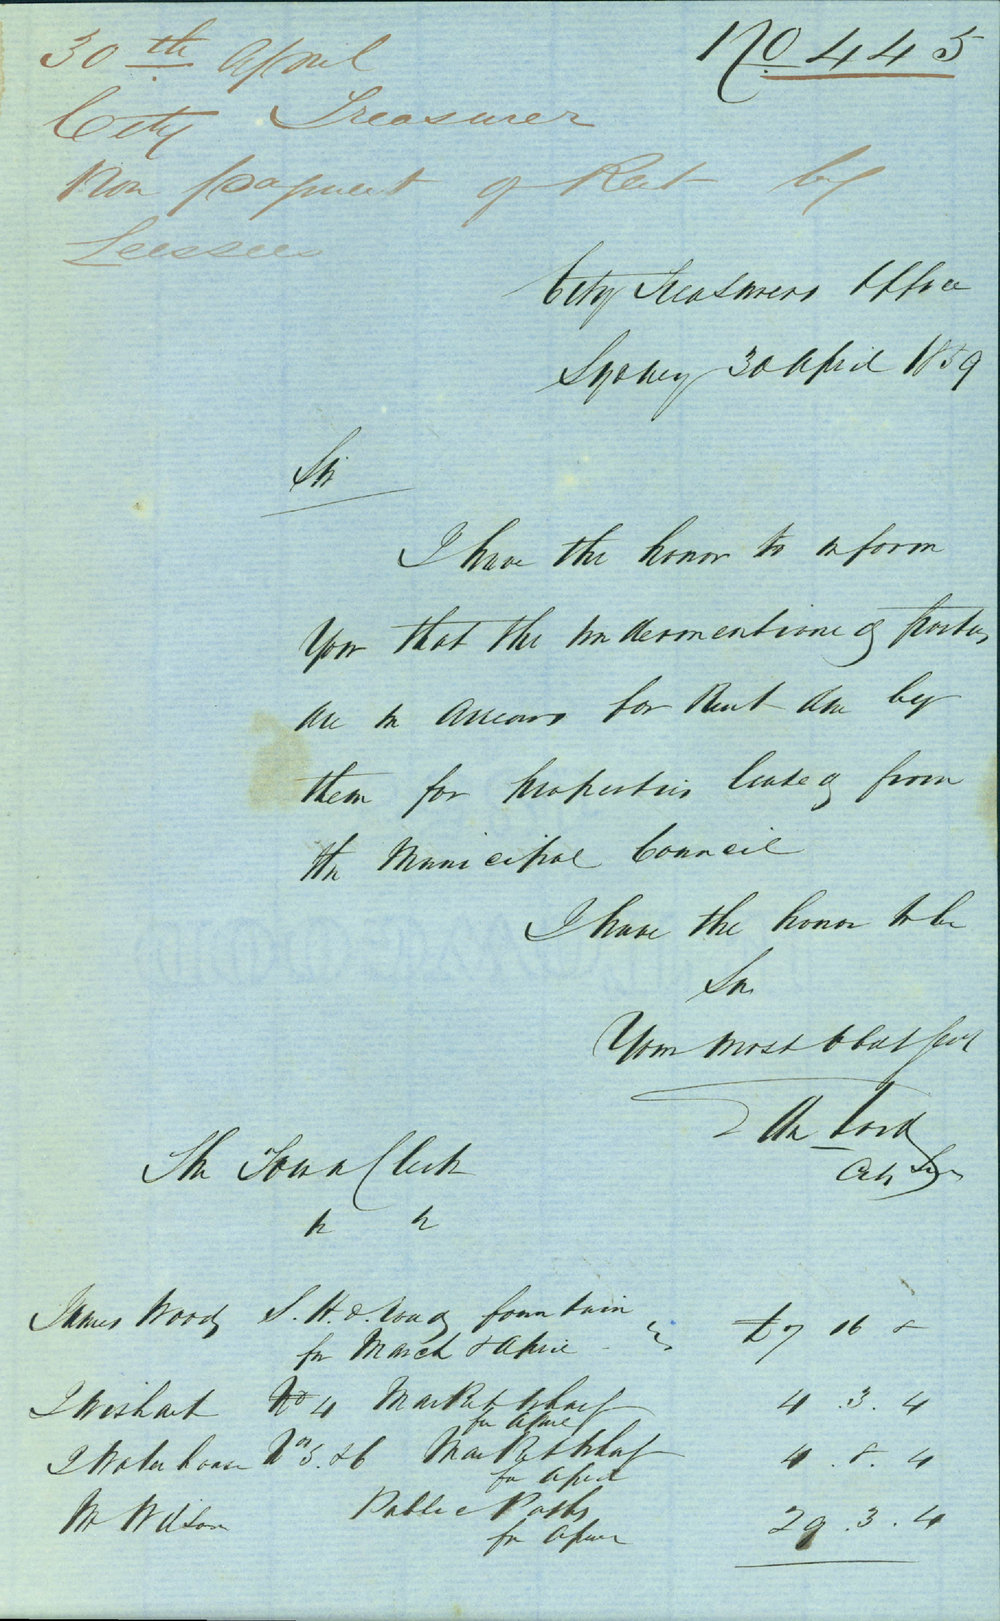 No 445
30th April
City Treasurer
Non payment of Rent by
Leessees
City Treasurers Office
Sydney 30 April 1859
Sir
I have the honor to inform
You that the undermentioned parties
are in arrears for Rent due by
them for properties leased from
the Municipal Council
I have the honor to be
Sir
Your most obdt servt
City Tr
The Town Clerk
James Woods S. H. Road fountain
for March & April £7 16 8
J Wishart No 4 Market Wharf 4.3.4
for April
J Waterhouse Nos 5. & 6 Market Wharf 4.8.4
for April
W Wilson Public Baths 29.3.4
for April